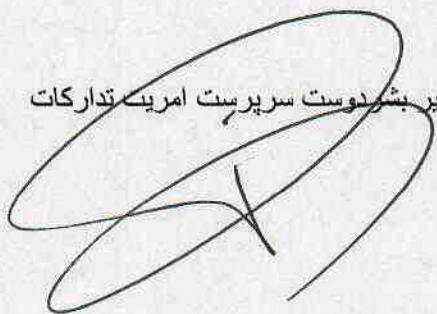 بشردوست سرپرست امریت تدارکات